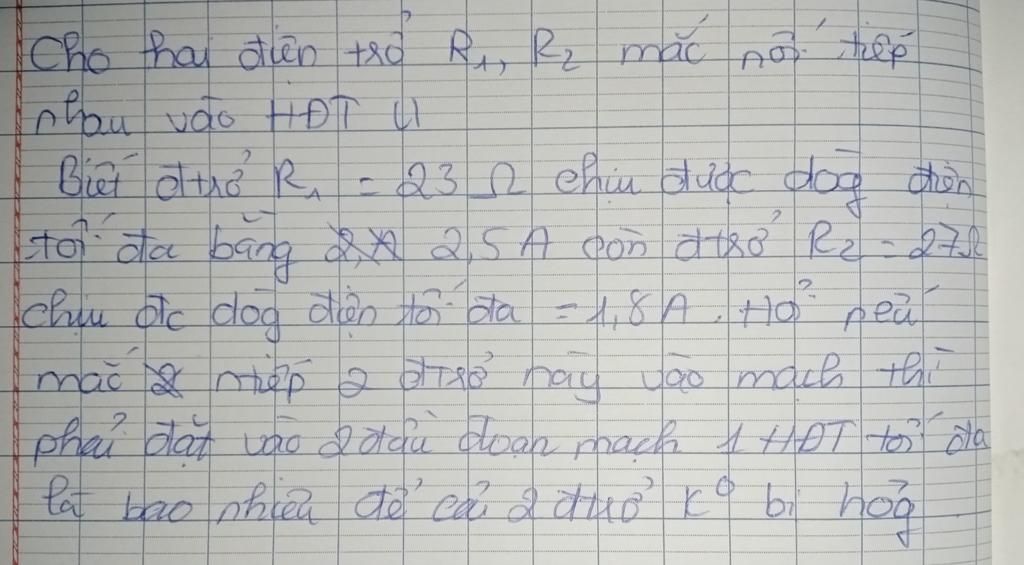 Cho hai điện trở R₁, R₂ mắc nối tiếp
nhau vào HĐT U
Biết đtrở R₁ = 23 Ω chịu được dog̀ điện
tối đa bằng 2,5A còn đtrở R₂ = 27Ω
chịu đc dog̀ điện tối đa = 1,8A. Hỏi nếu
mắc ntiếp 2 đtrở này vào mạch thì
phải đặt vào 2 đầu đoạn mạch 1 HĐT tối đa
là bao nhiêu để cả 2 đtrở k⁰ bị hog̉